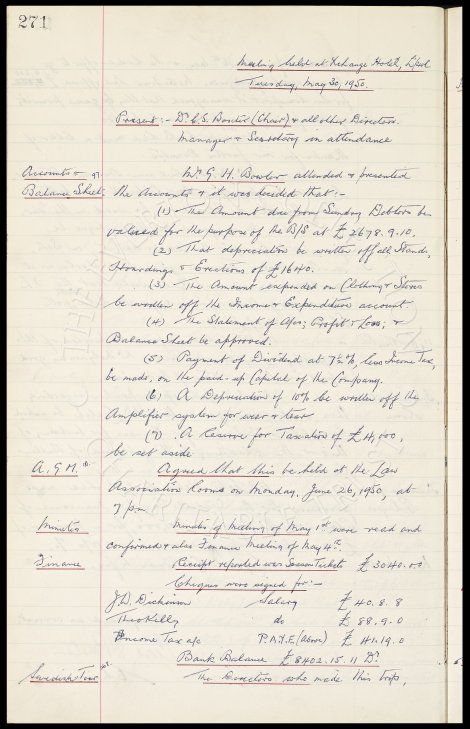 271
Meeting held at Exchange Hotel, L'pool
Tuesday, May 30, 1950.
Present:- Dr. C.S. Baxter (Chair) & all other Directors.
Manager & Secretary in attendance
Accounts & Mr. G. H. Bowler attended & presented
Balance Sheet. the Accounts & it was decided that:-
(1) The Amount due from Sundry Debtors be
valued for the purpose of the B/S at £2678.9.10.
(2) That depreciation be written off all Stands,
Hoardings & Erections of £1640.
(3) The Amount expended on Clothing & Stores
be written off the Income & Expenditure account
(4) The Statement of Affrs; Profit & Loss; &
Balance Sheet be approved.
(5) Payment of Dividend at 7½%, less Income Tax,
be made, on the paid-up Capital of the Company.
(6) A Depreciation of 10% be written off the
Amplifier system for wear & tear
(7) A Reserve for Taxation of £14,000,
be set aside
A.G.M. Agreed that this be held at the Law
Association Rooms on Monday, June 26, 1950, at
7 pm.
Minutes Minutes of Meeting of May 1st were read and
confirmed & also Finance Meeting of May 4th.
Finance Receipt reported was Season Tickets £3040.00
Cheques were signed for:-
J.D. Dickinson Salary £40.8.8
Theo Kelly do £88.9.0
Income Tax a/c P.A.Y.E (above) £41.19.0
Bank Balance £8402.15.11 Dr.
Swedish Tour The Directors who made this trip,